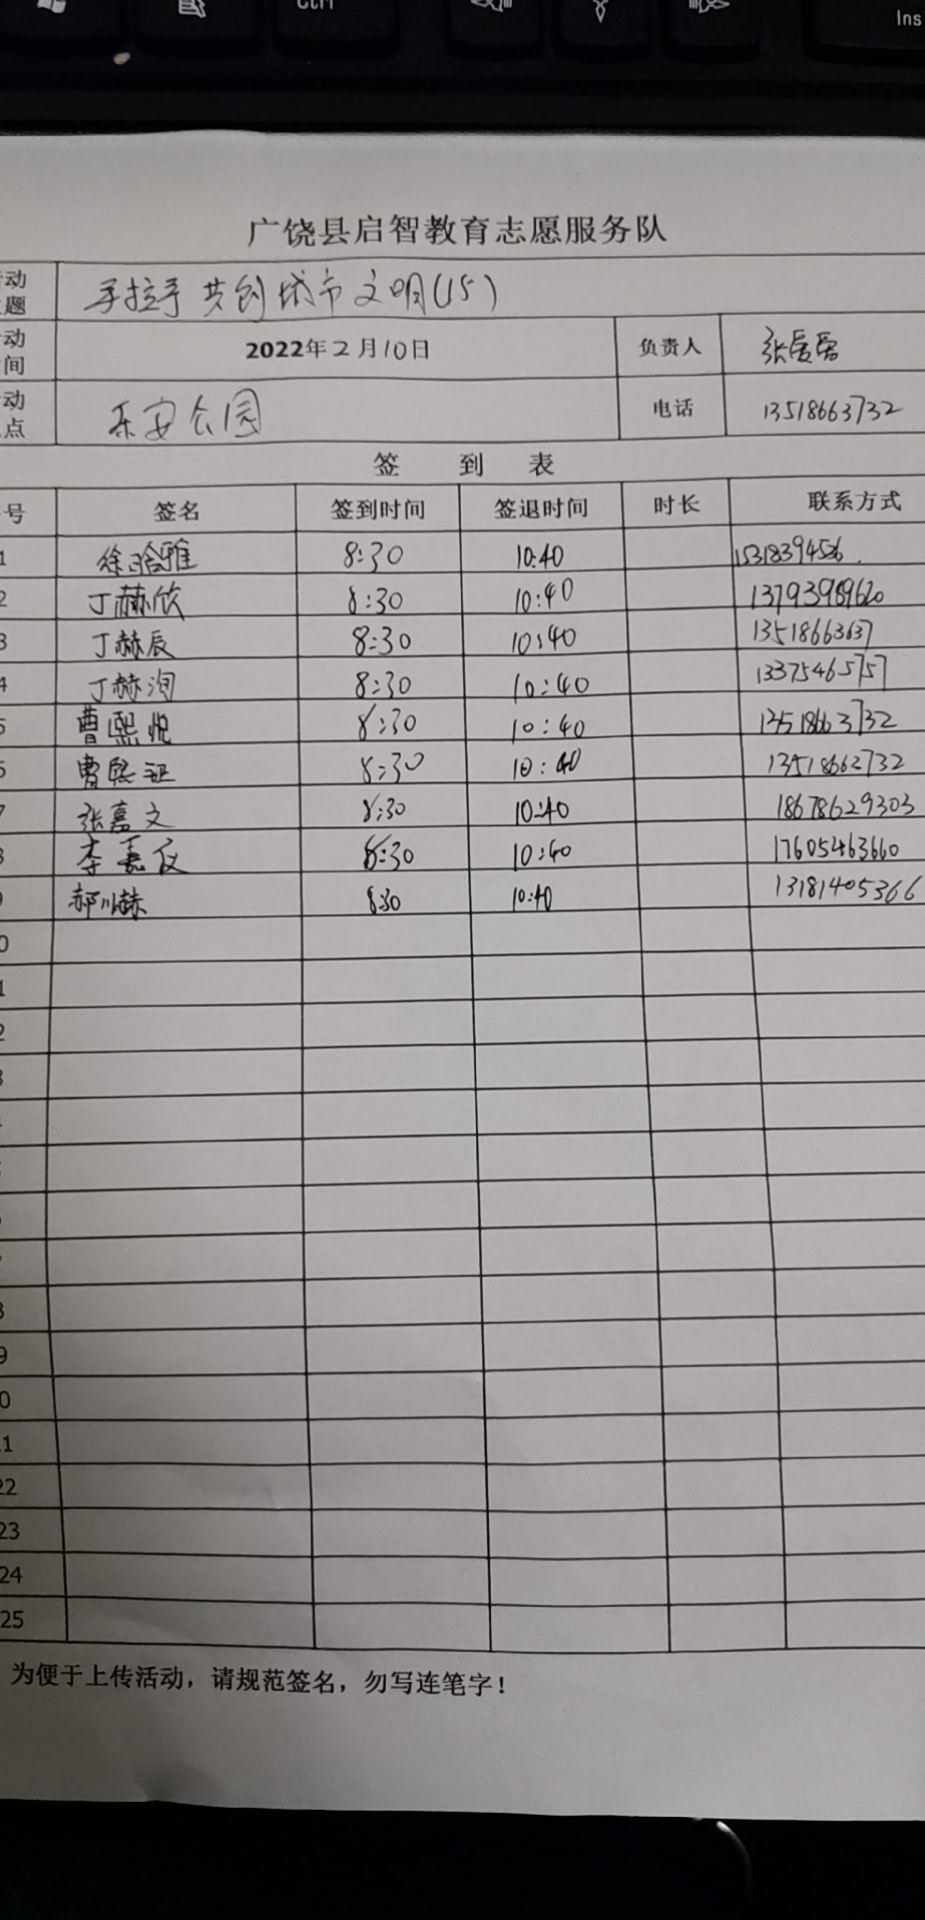 Ctrl
Ins
广饶县启智教育志愿服务队
动题 手拉手 共创城市文明(15)
动间 2022年2月10日 负责人 张
动点 乐安公园 电话 13518663732
签 到 表
号 签名 签到时间 签退时间 时长 联系方式
1 徐晗雅 8:30 10:40 15318394526
2 丁赫欣 8:30 10:40 13793989620
3 丁赫辰 8:30 10:40 13518663637
4 丁赫洵 8:30 10:40 13375465757
5 曹熙悦 8:30 10:40 13518663732
6 曹熙 8:30 10:40 13518662732
7 张嘉文 8:30 10:40 18678629303
8 李嘉仪 8:30 10:40 17605463660
9 郝川赫 8:30 10:40 13181405366
0
1
2
3
8
9
0
1
22
23
24
25
为便于上传活动，请规范签名，勿写连笔字！